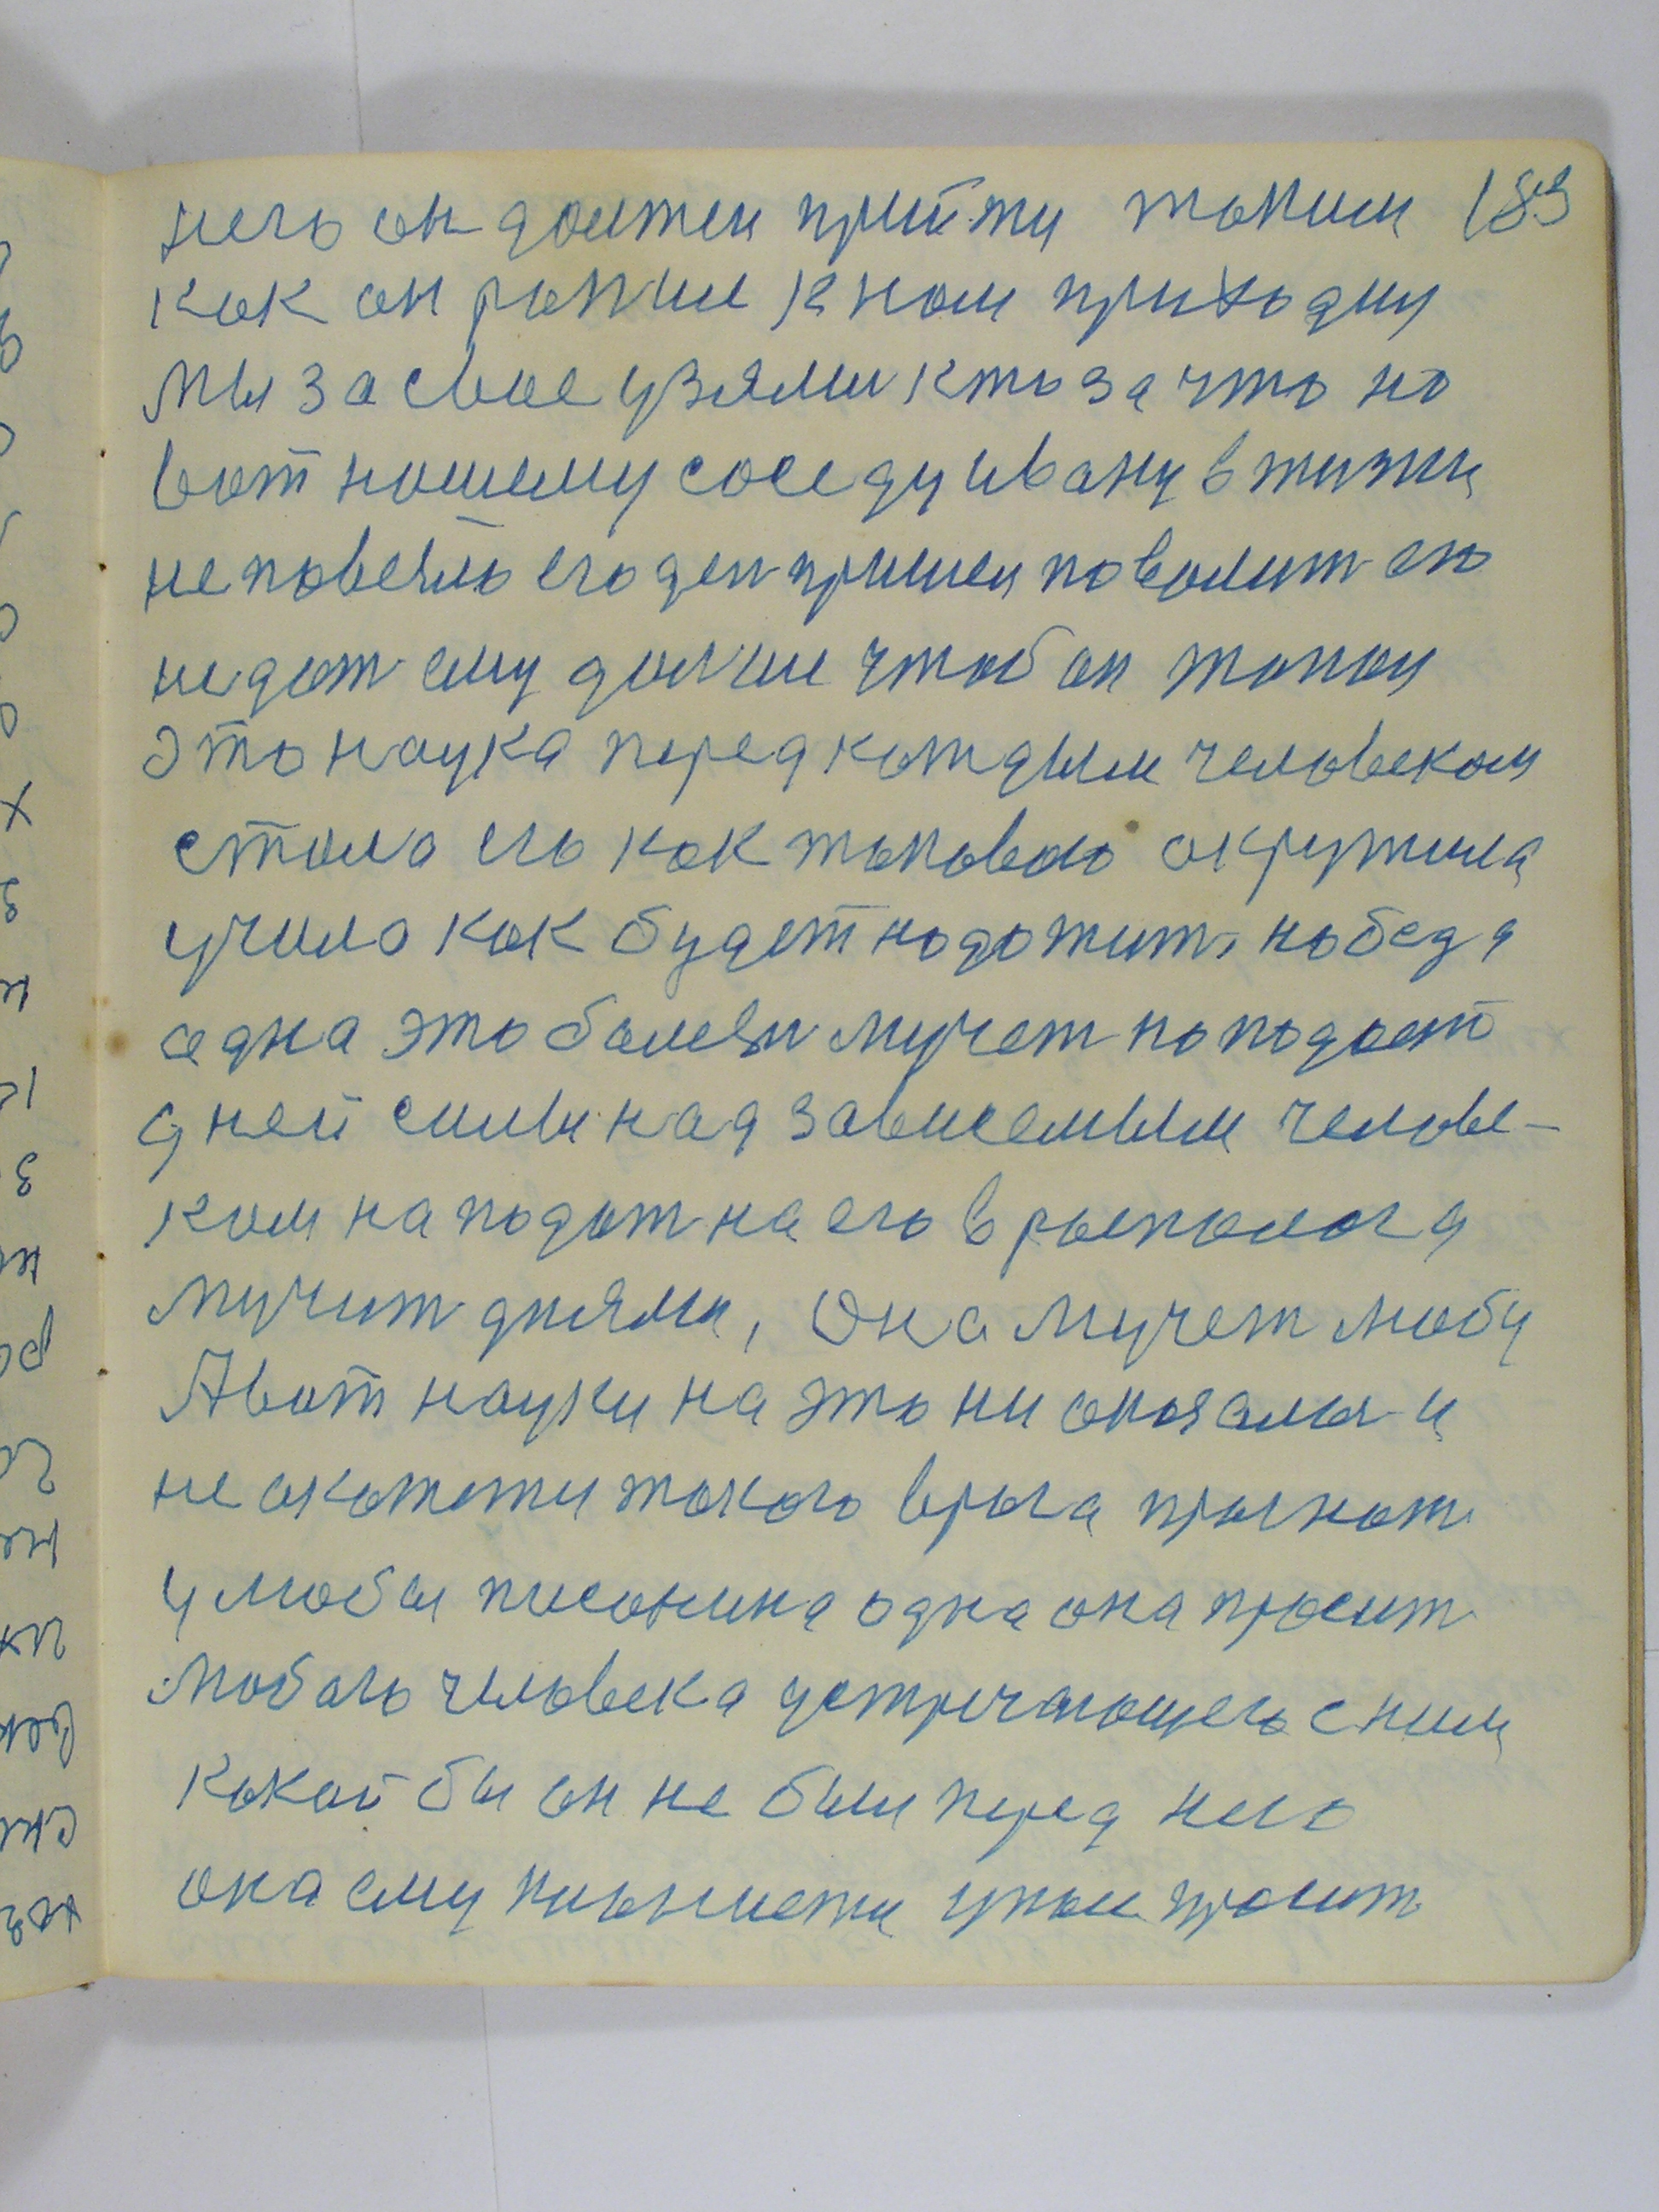 него он должен прийти таким 183
как он раньше к нам приходил
мы за свое узялись кто за что но
вот нашему соседу ивану в жизни
не повезло его ден пришел повалит его
не дает ему дальше чтоб он топал
это наука перед каждым человеком
стала его как такового окружила
учила как будет надо жить но беда
одна это болезн мучет нападает
дней силы над зависемым челове-
ком нападает на его в располога
мучит днями, Она мучет любы
А вот науки на это ни оказалы и
не окажети такого врага прогнат
у любы писанина одна она просит
любого человека устричающего с ним
какой бы он не был перед него
она ему упал просит